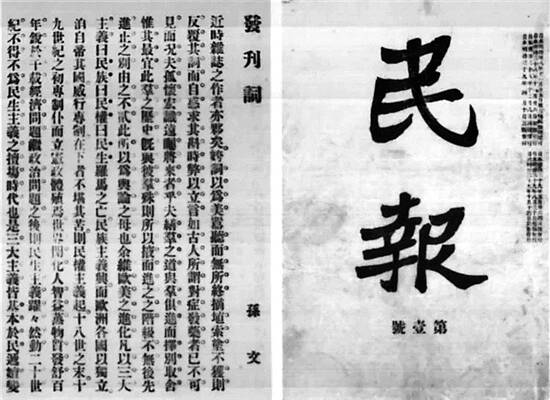 民報
第壹號
發刊詞
孫文
近時雜誌之作者亦夥矣姱詞以爲美囂聽而無所終摘埴索塗不獲則
反覆其詞而自惑求其斟時弊以立言如古人所謂對症發藥者已不可
見而況夫孤懷宏識遠矚將來者乎夫繕羣之道與羣俱進而擇別取舍
惟其最宜此羣之歷史既與彼羣殊則所以掖而進之之階級不無後先
進止之別由之不貳此所以爲輿論之母也余維歐美之進化凡以三大
主義曰民族曰民權曰民生羅馬之亡民族主義興而歐洲各國以獨立
洎自帝其國威行專制在下者不堪其苦則民權主義起十八世之末十
九世紀之初專制仆而立憲政體殖焉世界開化人智益蒸物質發舒百
年銳於千載經濟問題繼政治問題之後則民生主義躍躍然動二十世
紀不得不爲民生主義之擅塲時代也是三大主義皆基本於民遞嬗變